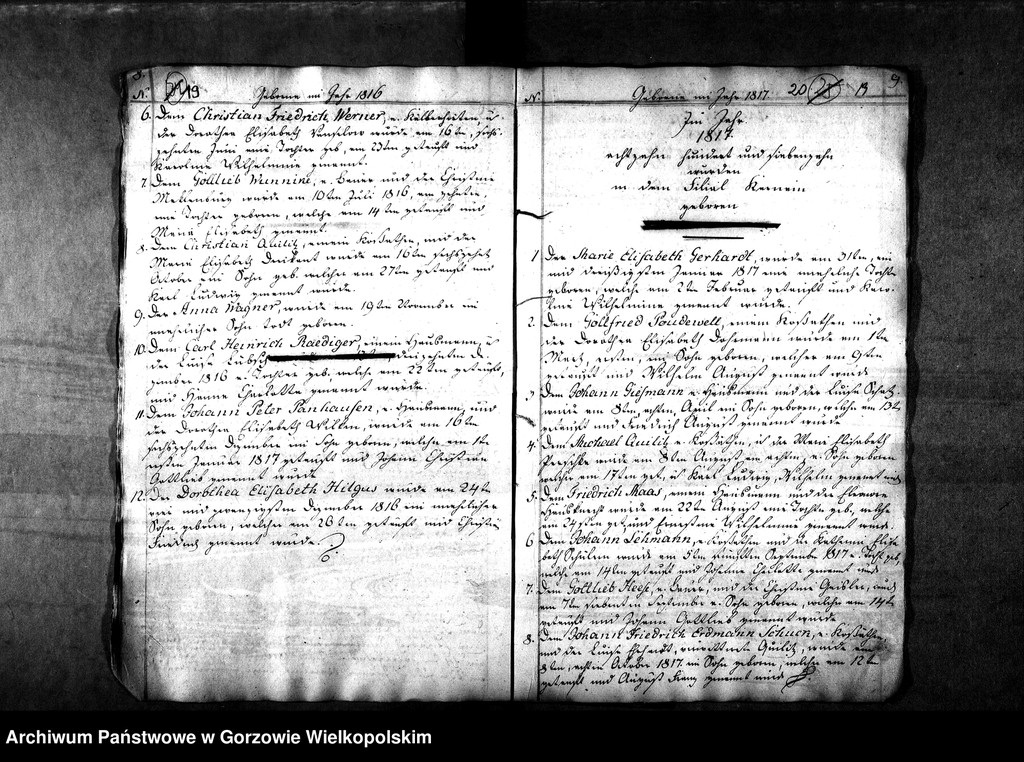 8.
N. 19
Geborne im Jahr 1816
6. Dem Christian Friedrich Werner, e.
der Dorothea Elisabeth wurde am 16ten
Juni eine Tochter geb. am 23ten getauft und
Karoline Wilhelmine genannt.
7. Dem Gottlieb e. Bauer und der Christine
Mecklenburg wurde am 10ten Juli 1816, am zehnten
eine Tochter geboren, welche am 14ten getauft und
Maria Elisabeth genannt.
8. Dem Christian Quilitz, einem Kossäthen, und der
Maria Elisabeth wurde am 16ten
Oktober ein Sohn geb. welcher am 27ten getauft und
Karl Ludwig genannt wurde.
9. Der Anna Wagner, wurde am 19ten November ein
unehelicher Sohn todt geboren.
10. Dem Carl Heinrich Raediger, einem Hausmann, u.
der Luise
1816 e. Tochter geb. welche am 22ten getauft,
und Hanne Charlotte genannt wurde.
11. Dem Johann Peter Panhausen, e. Hausmann, und
der Dorothea Elisabeth wurde am 16ten
sechszehnten Dezember ein Sohn geboren, welcher am 1ten
ersten Januar 1817 getauft und Johann Christian
Gottlieb genannt wurde
12. Der Dorothea Elisabeth Hilgus wurde am 24ten
vier und zwanzigsten Dezember 1816 ein unehelicher
Sohn geboren, welcher am 26ten getauft und Christian
Friedrich genannt wurde.
N. Geborne im Jahr 1817 20 19 9.
Im Jahr
1817.
achtzehn hundert und siebenzehn
wurden
in dem Filial Kernein
geboren
1 Der Marie Elisabeth Gerhardt, wurde am 31ten, ein
und dreißigsten Januar 1817 eine uneheliche Tochter
geboren, welche am 2ten Februar getauft und Karo-
line Wilhelmine genannt wurde.
2. Dem Gottfried Poudewell, einem Kossäthen und
der Dorothea Elisabeth wurde am 1ten
März, ersten, ein Sohn geboren, welcher am 9ten
getauft und Wilhelm August genannt wurde
3 Dem Johann Giesmann e. Hausmann und der Luise
wurde am 8ten, achten April ein Sohn geboren, welcher am 13ten
getauft und Friedrich August genannt wurde
4. Dem Michael Quilitz e. Kossäthen, u. der Maria Elisabeth
wurde am 8ten August, am achten, e. Sohn geboren
welcher am 17ten get. u. Karl Ludwig Wilhelm genannt
5. Dem Friedrich Maas, einem Hausmann und der
wurde am 22ten August eine Tochter geb. welche
am 24ten get. und Ernestine Wilhelmine genannt wurde.
6 Dem Johann Lehmann, e. Kossäthen und der Katharina Elisa-
beth wurde am 5ten fünften September 1817 e. Tocht. geb.
welche am 14ten getauft und Charlotte genannt wurde
7. Dem Gottlieb Hese, e. Bauer, und der Christine Geisler, wurde
am 7ten siebenten September e. Sohn geboren, welcher am 14ten
getauft und Johann Gottlieb genannt wurde
8. Dem Johann Friedrich Erdmann Schuen, e. Kossäthen
und der Luise Quilitz, wurde am
8ten, achten Oktober 1817. ein Sohn geboren, welcher am 12ten
getauft und August Franz genannt wurde
Archiwum Państwowe w Gorzowie Wielkopolskim